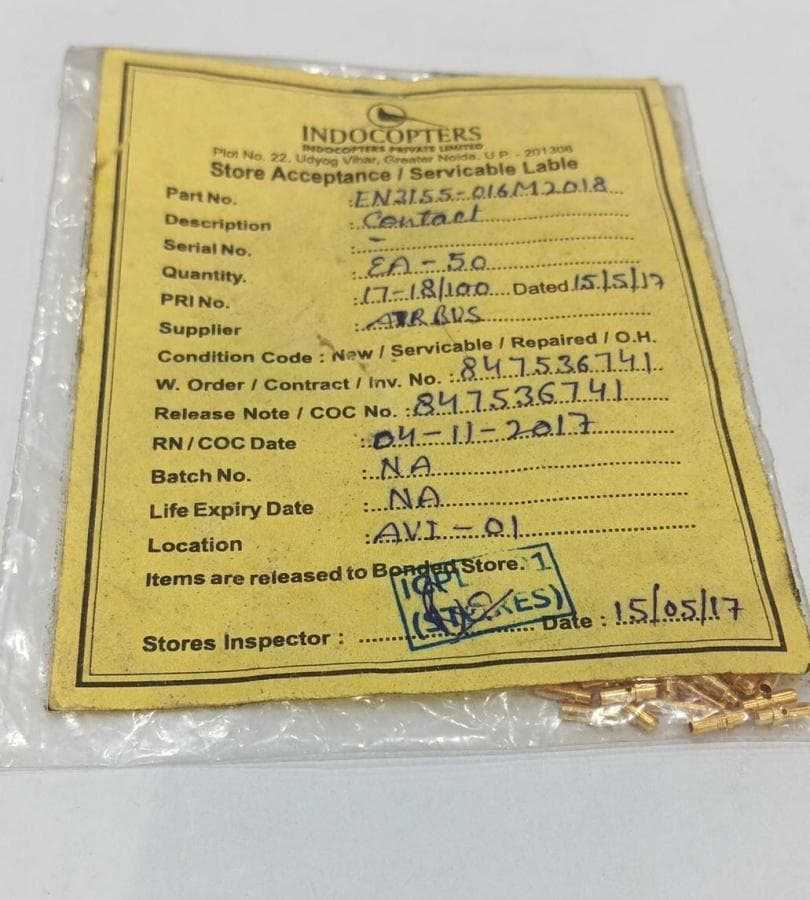 INDOCOPTERS
INDOCOPTERS PRIVATE LIMITED
Plot No. 22, Udyog Vihar, Greater Noida, U.P. - 201306
Store Acceptance / Servicable Lable
Part No. : EN3155-016M2018
Description : Contact
Serial No. : -
Quantity. : EA - 50
PRI No. : 17-18/100 Dated 15/5/17
Supplier : AIRBUS
Condition Code : New / Servicable / Repaired / O.H.
W. Order / Contract / Inv. No. : 847536741
Release Note / COC No. : 847536741
RN / COC Date : 04-11-2017
Batch No. : NA
Life Expiry Date : NA
Location : AVI - 01
Items are released to Bonded Store.
1
(STORES)
Stores Inspector : Date : 15/05/17